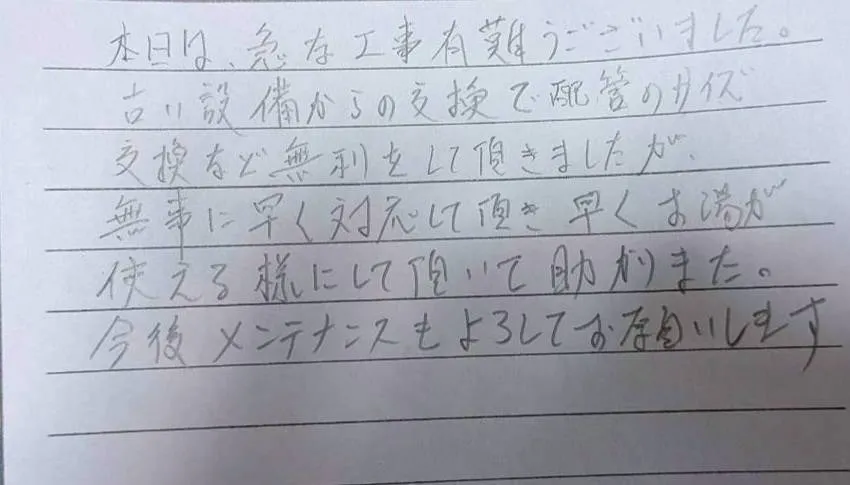 本日は、急な工事有難うございました。
古い設備からの交換で配管のサイズ
交換など無利をして頂きましたが、
無事に早く対応して頂き早くお湯が
使える様にして頂いて助かりまた。
今後メンテナンスもよろしてお願いします